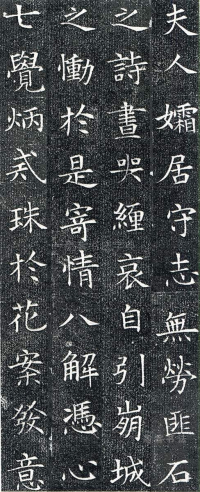 夫人孀居守志無勞匪石
之詩晝哭纏哀自引崩城
之慟於是寄情八解憑心
七覺炳戒珠於花案發意